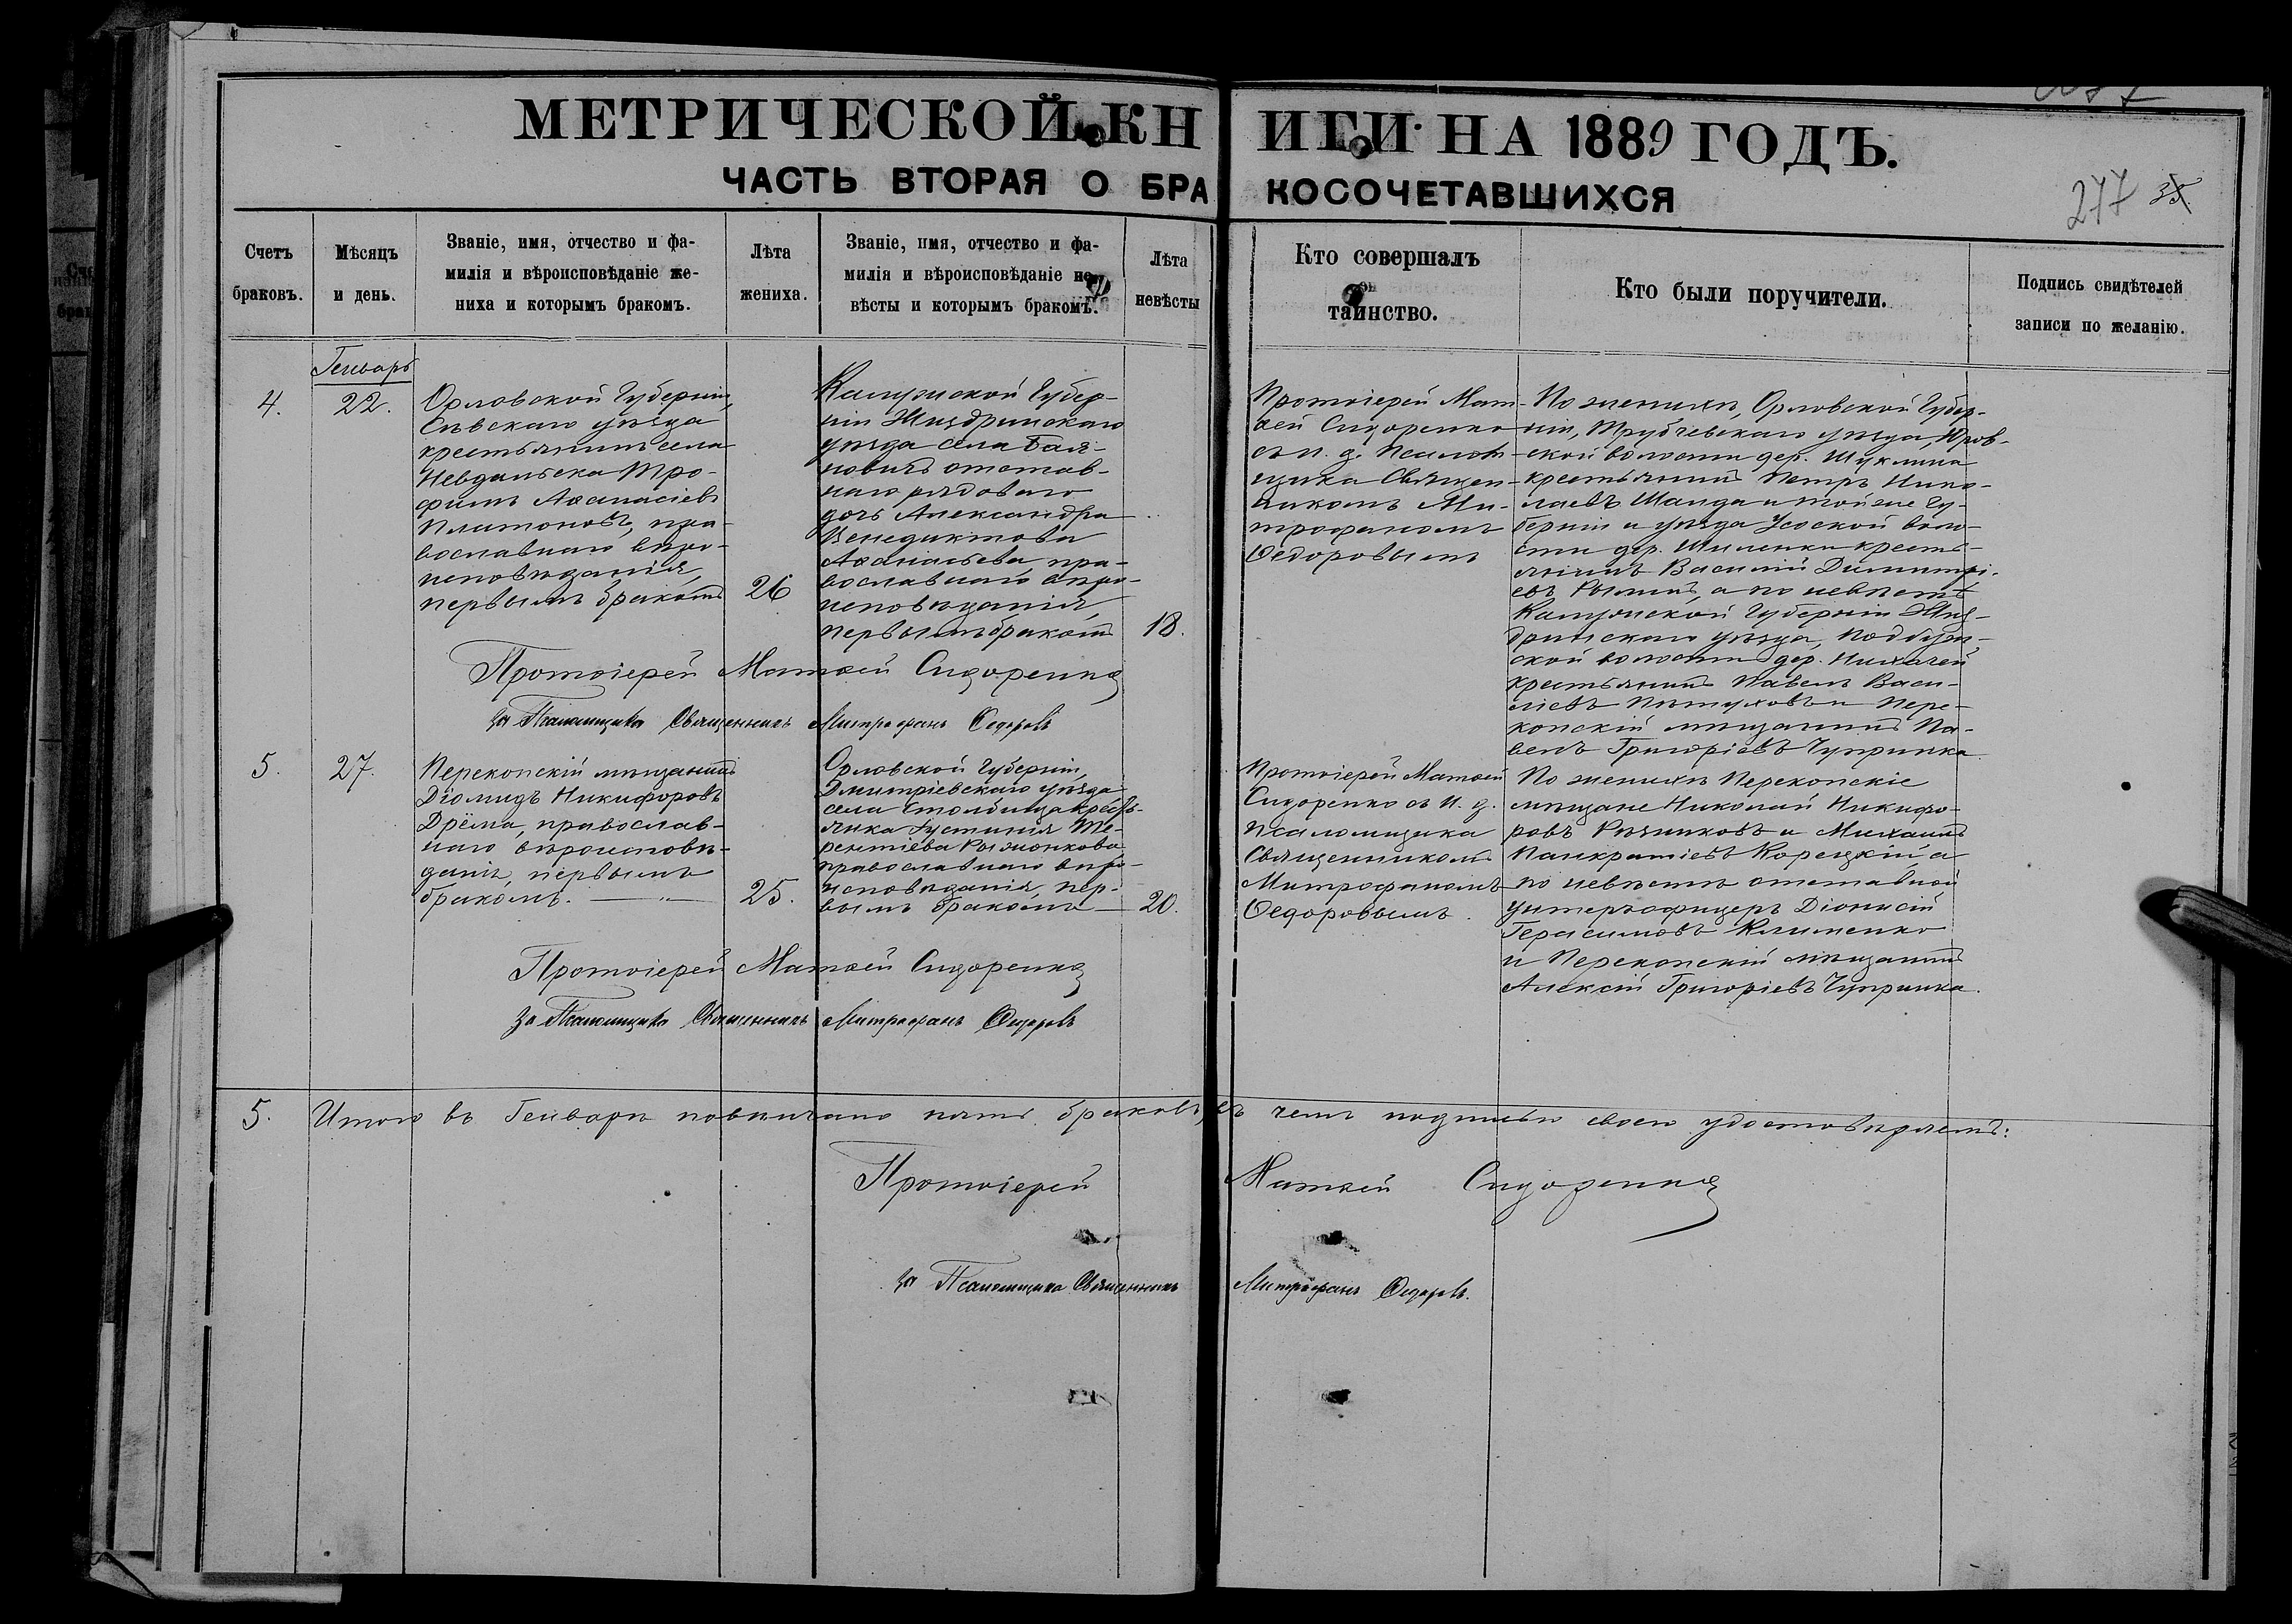 МЕТРИЧЕСКОЙ КНИГИ НА 1889 ГОДЪ.
ЧАСТЬ ВТОРАЯ О БРАКОСОЧЕТАВШИХСЯ
277 35
Счетъ
браковъ.
Мѣсяцъ
и день.
Званіе, имя, отчество и фа-
милія и вѣроисповѣданіе же-
ниха и которымъ бракомъ.
Лѣта
жениха.
Званіе, имя, отчество и фа-
милія и вѣроисповѣданіе не-
вѣсты и которымъ бракомъ.
Лѣта
невѣсты
Кто совершалъ
таинство.
Кто были поручители.
Подпись свидѣтелей
записи по желанію.
Генварь
4.
22.
Орловской Губерніи,
Сѣвскаго уѣзда
крестьянинъ села
Невдольска Тро-
фимъ Аѳанасіевъ
Платоновъ, пра-
вославнаго вѣро-
исповѣданія,
первымъ бракомъ
26
Калужской Губер-
ніи Жиздринскаго
уѣзда села Бая-
новичъ отстав-
наго рядоваго
дочь Александра
Венедиктова
Аѳанасьева, пра-
вославнаго вѣро-
исповѣданія,
первымъ бракомъ
18.
Протоіерей Мат-
ѳей Сидоренко
съ и. д. Псалом-
щика Священ-
никомъ Ми-
трофаномъ
Ѳедоровымъ
По женихѣ, Орловской Губер-
ніи, Трубчевскаго уѣзда, Юров-
ской волости дер. Шуклина
крестьянинъ Петръ Нико-
лаевъ Шаида и той же Гу-
берніи и уѣзда Усоской воло-
сти дер. Шиленки кресть-
янинъ Василій Димитрі-
евъ Рыжій, а по невѣстѣ
Калужской Губерніи Жиз-
дринскаго уѣзда, Подбуж-
ской волости дер. Нихачей
крестьянинъ Павелъ Васи-
ліевъ Пѣтуховъ и Пере-
копскій мѣщанинъ Па-
велъ Григоріевъ Чупринка
Протоіерей Матѳей Сидоренко
за Псаломщика Священникъ Митрофанъ Ѳедоровъ
5.
27.
Перекопскій мѣщанинъ
Діомидъ Никифоровъ
Дрёма, православ-
наго вѣроисповѣ-
данія, первымъ
бракомъ. — " —
25.
Орловской Губерніи,
Дмитріевскаго уѣзда
села Столбища кресть-
янка Іустинія Те-
рентіева Рыжонкова
православнаго вѣро-
исповѣданія, пер-
вымъ бракомъ —
20.
Протоіерей Матѳей
Сидоренко съ и. д.
псаломщика
Священникомъ
Митрофаномъ
Ѳедоровымъ.
По женихѣ Перекопскіе
мѣщане Николай Никифо-
ровъ Рѣзниковъ и Михаилъ
Панкратіевъ Корецкій, а
по невѣстѣ отставной
унтеръ-офицеръ Діонисій
Герасимовъ Клименко
и Перекопскій мѣщанинъ
Алексій Григоріевъ Чупринка.
Протоіерей Матѳей Сидоренко
За Псаломщика Священникъ Митрофанъ Ѳедоровъ
5. Итого въ Генварѣ повѣнчано пять браковъ, въ чемъ подписью своею удостовѣряемъ:
Протоіерей Матѳей Сидоренко
за Псаломщика Священникъ Митрофанъ Ѳедоровъ.